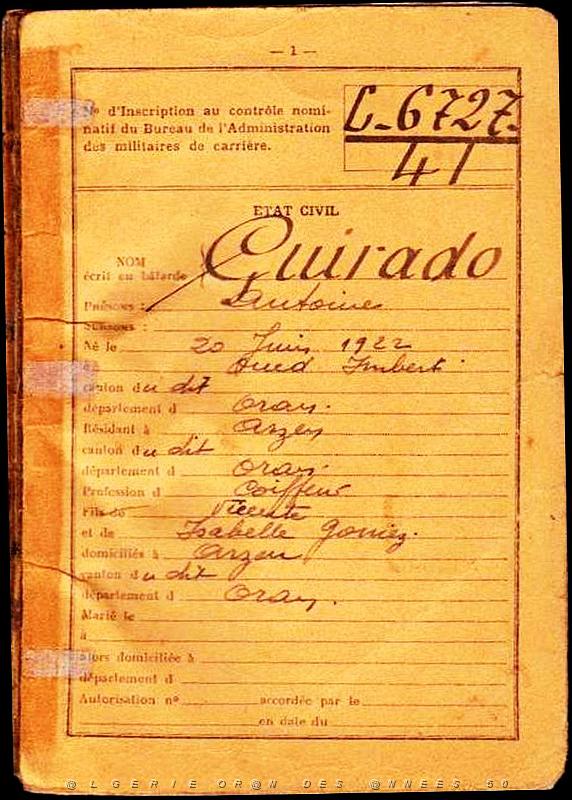 — 1 —
Nº d'Inscription au contrôle nomi-
natif du Bureau de l'Administration
des militaires de carrière.
L-6727
41
ETAT CIVIL
NOM
écrit en bâtarde
Quirado
Prénoms : Antoine
Surnoms :
Né le 20 Juin 1922
à Oued Imbert
canton du dit
département d Oran.
Résidant à Arzew
canton du dit
département d Oran.
Profession d Coiffeur
Fils de Vicente
et de Isabelle Gomez.
domiciliés à Arzew
canton du dit
département d Oran.
Marié le
à
alors domiciliée à
département d
Autorisation nº accordée par le
en date du
@LGERIE OR@N DES @NNEES 50